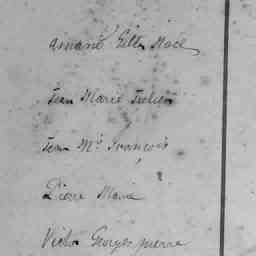 amand Gilles Noel
Jean Marie Julien
Jean Mie François
Pierre Marie
Victor Georges pierre